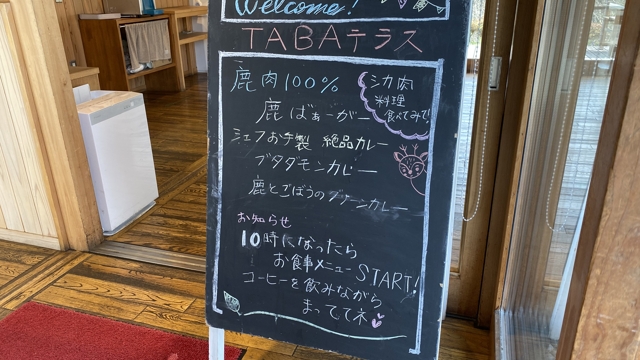 Welcome!
TABAテラス
鹿肉100%
鹿ばぁーがー
シカ肉
料理
食べてみて!
シェフお手製 絶品カレー
ブタダモンカレー
鹿とごぼうのグリーンカレー
お知らせ
10時になったら
お食事メニュー START!
コーヒーを飲みながら
まっててネ